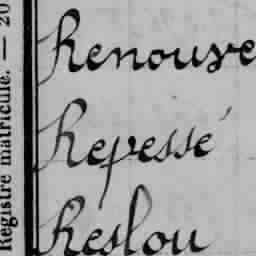 Registre matricule. — 20
Renouve
Repessé
Reslou